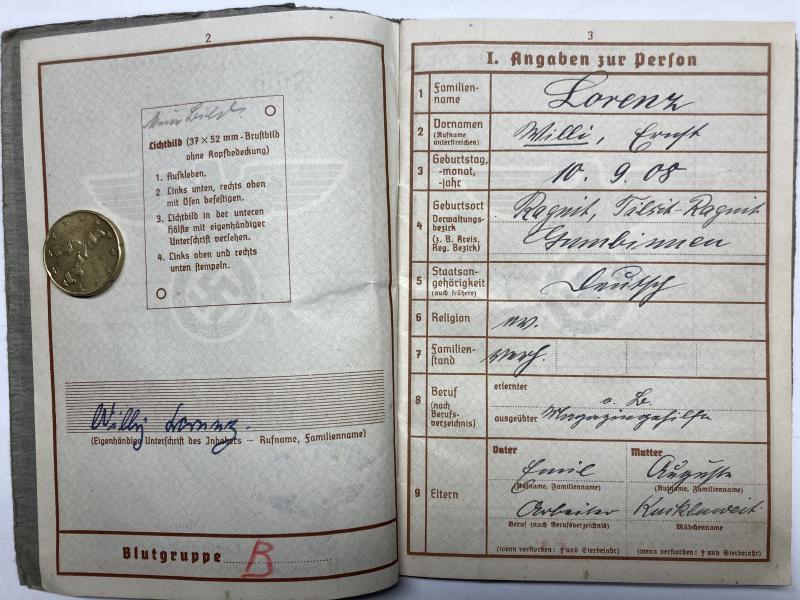 2
Kein Bild
Lichtbild (37 × 52 mm - Brustbild
ohne Kopfbedeckung)
1. Aufkleben.
2. Links unten, rechts oben
mit Ösen befestigen.
3. Lichtbild in der unteren
Hälfte mit eigenhändiger
Unterschrift versehen.
4. Links oben und rechts
unten stempeln.
Willy Lorenz.
(Eigenhändige Unterschrift des Inhabers — Rufname, Familienname)
Blutgruppe B
3
I. Angaben zur Person
1 Familien-
name
Lorenz
2 Vornamen
(Rufname
unterstreichen)
Willi, Ernst
3 Geburtstag,
-monat,
-jahr
10. 9. 08
4 Geburtsort
Verwaltungs-
bezirk
(z. B. Kreis,
Reg. Bezirk)
Ragnit, Tilsit-Ragnit
Gumbinnen
5 Staatsan-
gehörigkeit
(auch frühere)
Deutsch
6 Religion
ev.
7 Familien-
stand
verh.
8 Beruf
(nach
Berufs-
verzeichnis)
erlernter
o. B.
ausgeübter Magazingehilfe
9 Eltern
Vater
Emil
(Rufname, Familienname)
Arbeiter
Beruf (nach Berufsverzeichnis)
(wenn verstorben: † und Sterbejahr)
Mutter
Auguste
(Rufname, Familienname)
Mädchenname
(wenn verstorben: † und Sterbejahr)